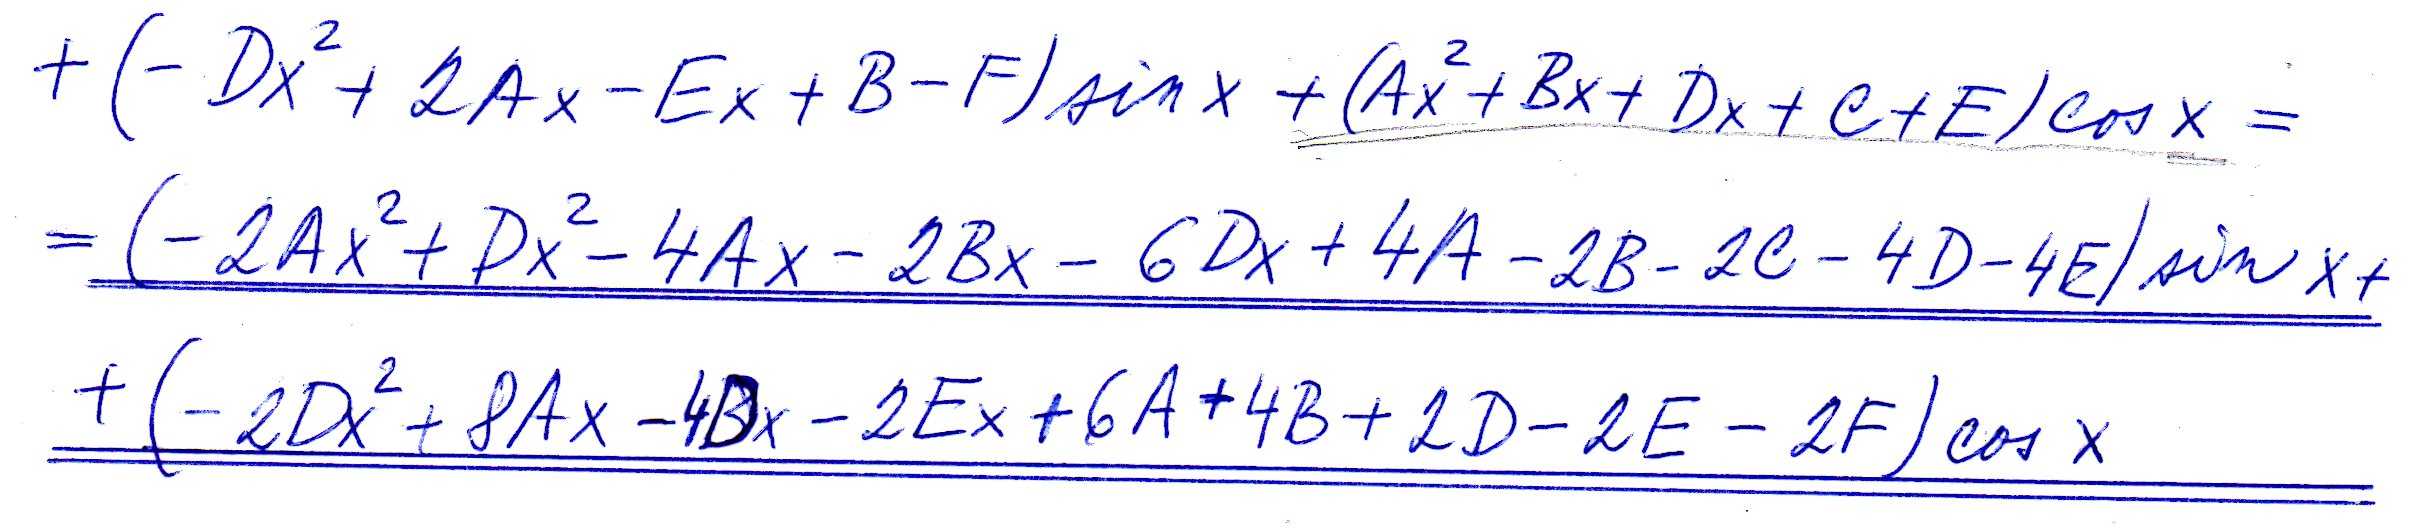 +(-Dx²+2Ax-Ex+B-F)sinx+(Ax²+Bx+Dx+C+E)cosx=
=(-2Ax²+Dx²-4Ax-2Bx-6Dx+4A-2B-2C-4D-4E)sinx+
+(-2Dx²+8Ax-4Dx-2Ex+6A+4B+2D-2E-2F)cosx